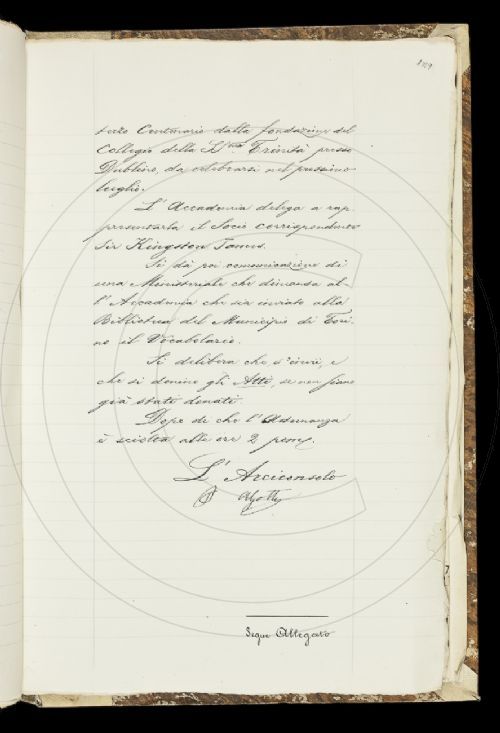 129
terzo Centenario dalla fondazione del
Collegio della S.ma Trinità presso
Dublino, da celebrarsi nel prossimo
luglio.
L'Accademia delega a rap-
presentarla il Socio corrispondente
Sir Kingston James.
Si dà poi comunicazione di
una Ministeriale che dimanda al-
l'Accademia che sia inviato alla
Biblioteca del Municipio di Tori-
no il Vocabolario.
Si delibera che s'invii, e
che si donino gli Atti, se non siano
già stati donati.
Dopo di che l'Adunanza
è sciolta alle ore 2 pom.
L'Arciconsolo
Segue Allegato